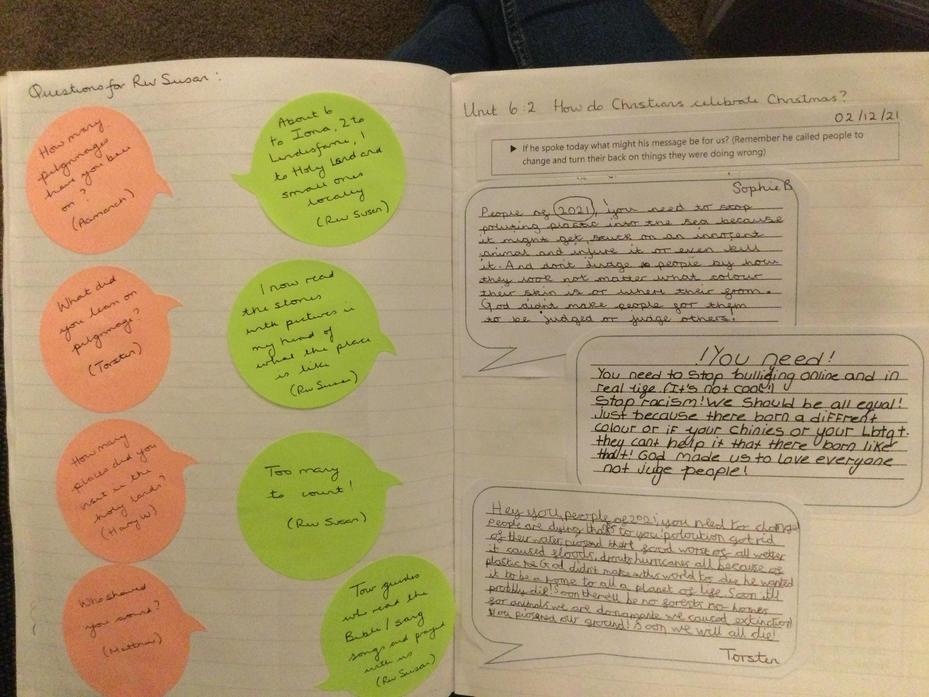 Questions for Rev Susan:
How many
pilgrimages
have you been
on?
(Aamanch)
About 6
to Iona, 2 to
Lindisfarne, 1
to Holy Land and
small ones
locally
(Rev Susan)
What did
you learn on
pilgrimage?
(Torsten)
I now read
the stories
with pictures in
my head of
what the place
is like
(Rev Susan)
How many
places did you
visit in the
holy lands?
(Harry W)
Too many
to count!
(Rev Susan)
Who showed
you around?
(Matthew)
Tour guides
who read the
Bible/sang
songs and prayed
with us
(Rev Susan)
Unit 6:2 How do Christians celebrate Christmas?
02/12/21
▶ If he spoke today what might his message be for us? (Remember he called people to
change and turn their back on things they were doing wrong)
Sophie B
People of 2021, you need to stop
poluting plastic into the sea because
it might get stuck on an innocent
animal and injure it or even kill
it. And dont judge people by how
they look not matter what colour
their skin is or where their from.
God didnt make people for them
to be judged or judge others.
!You need!
You need to stop bulliding online and in
real life. (It's not cool!)
Stop racism! We should be all equal!
Just because there born a diffrent
colour or if your Chinies or your Lbtqt.
they cant help it that there born like
that! God made us to love everyone
not Juge people!
Hey you, people of 2021 you need to change
People are dying thats to you poloution got rid
of their water poisond there food worst of all wetter
it caused floods, drouts huricanes all because of
plastic the God didn't make this world to die he wanted
it to be a home to all a planet of life Soon itll
probly die! Soon therell be no forests no homes
for animals we are we caused extinction
You poisond our ground! Soon we will all die!
Torsten